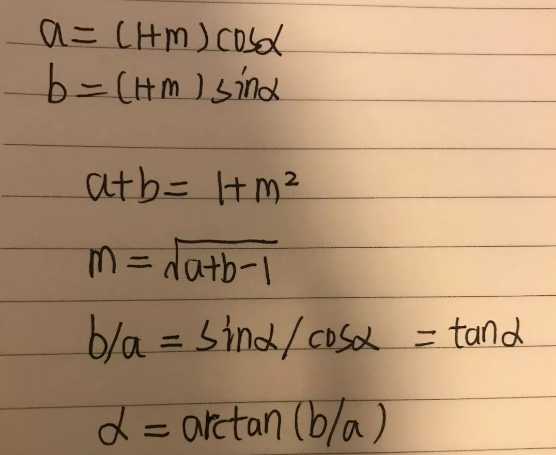 a = (1+m) cosα
b = (1+m) sinα
a+b = 1+m²
m = √(a+b-1)
b/a = sinα/cosα = tanα
α = arctan(b/a)